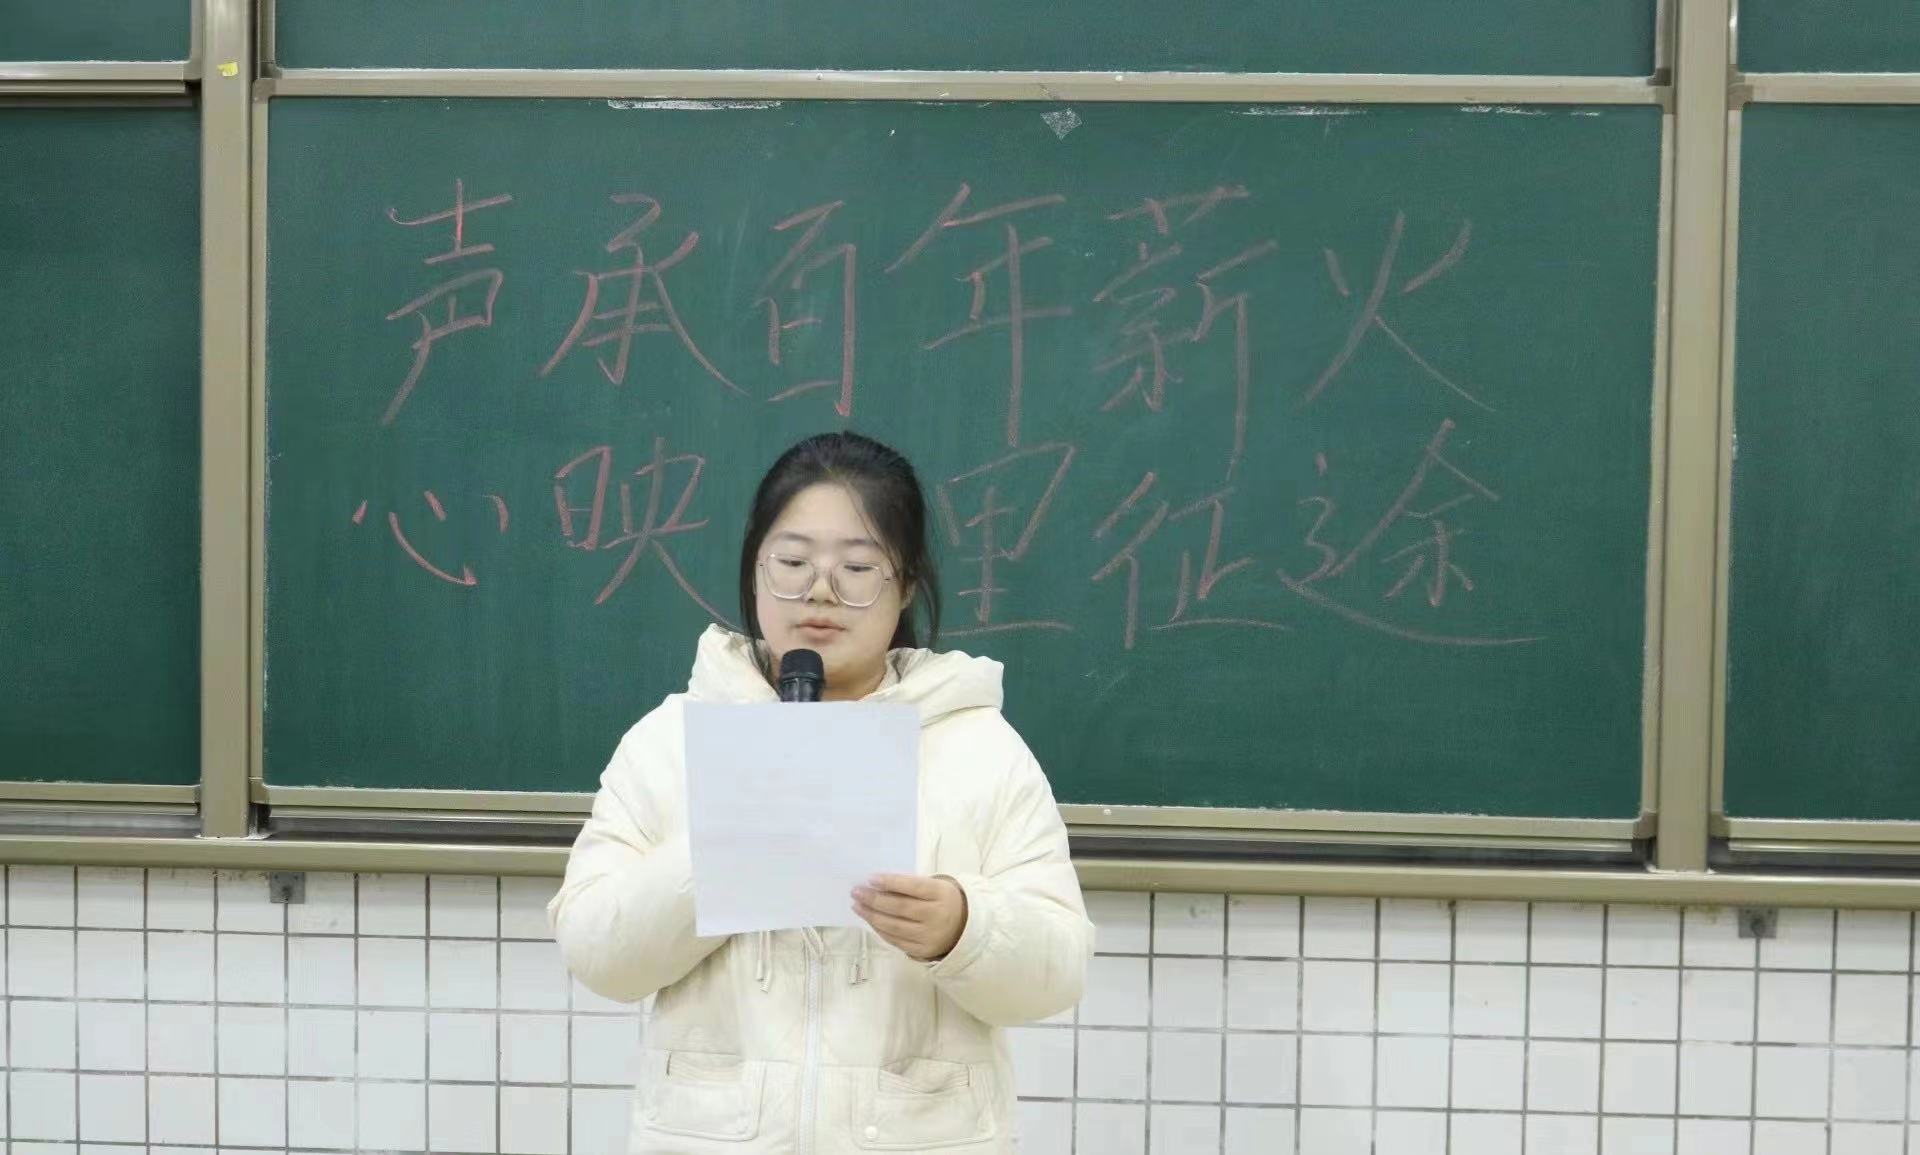 声承百年薪火
心映 里征途